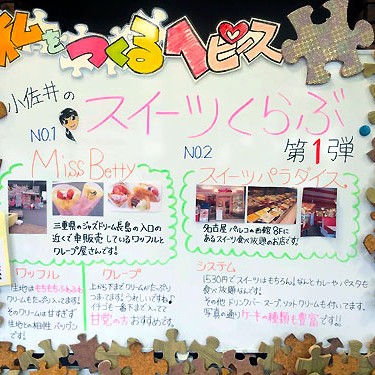 私をつくるヘピース
小佐井の
スイーツくらぶ
第1弾
NO.1
Miss Betty
三重県のジャズドリーム長島の入口の
近くで車販売しているワッフルと
クレープ屋さんです。
ワッフル
生地はもちもちふわふわ
クリームもたっぷり入ってます!
そのクリームは甘すぎず
生地との相性バツグン
です。
クレープ
上から下までクリームがたっぷり
つまってます。うれしいですねっ♪
イチゴも一番下まで入ってて
甘党の方おすすめです。
NO.2
スイーツパラダイス
名古屋パルコの西館8Fに
あるスイーツ食べ放題のお店です。
システム
1530円でスイーツはもちろん!なんとカレーやパスタも
食べ放題なんです。
その他ドリンクバー スープ、ソフトクリームも付いてます。
写真の通りケーキの種類も豊富です!!